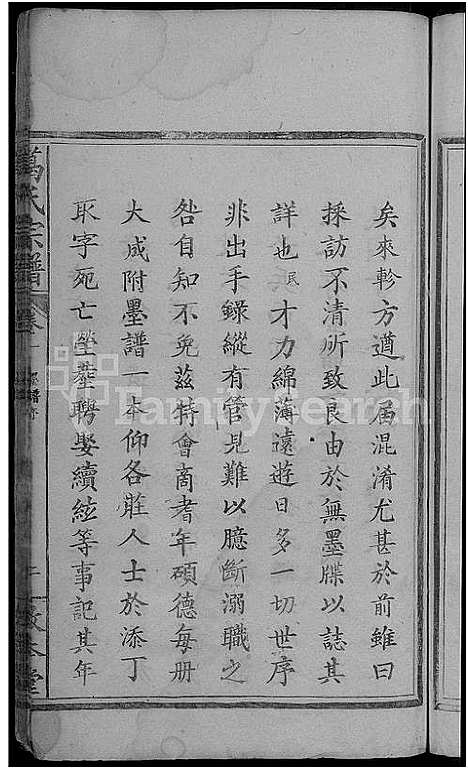 矣來軫方遒此届混淆尤甚於前雖曰
採訪不清所致良由於無墨牒以誌其
詳也民才力綿薄遠遊日多一切世序
非出手錄縱有管見難以臆斷溺職之
咎自知不免茲特會商耆年碩德每册
大成附墨譜一本仰各莊人士於添丁
取字死亡塋塟聘娶續絃等事記其年
萬氏宗譜
卷
FamilySearch